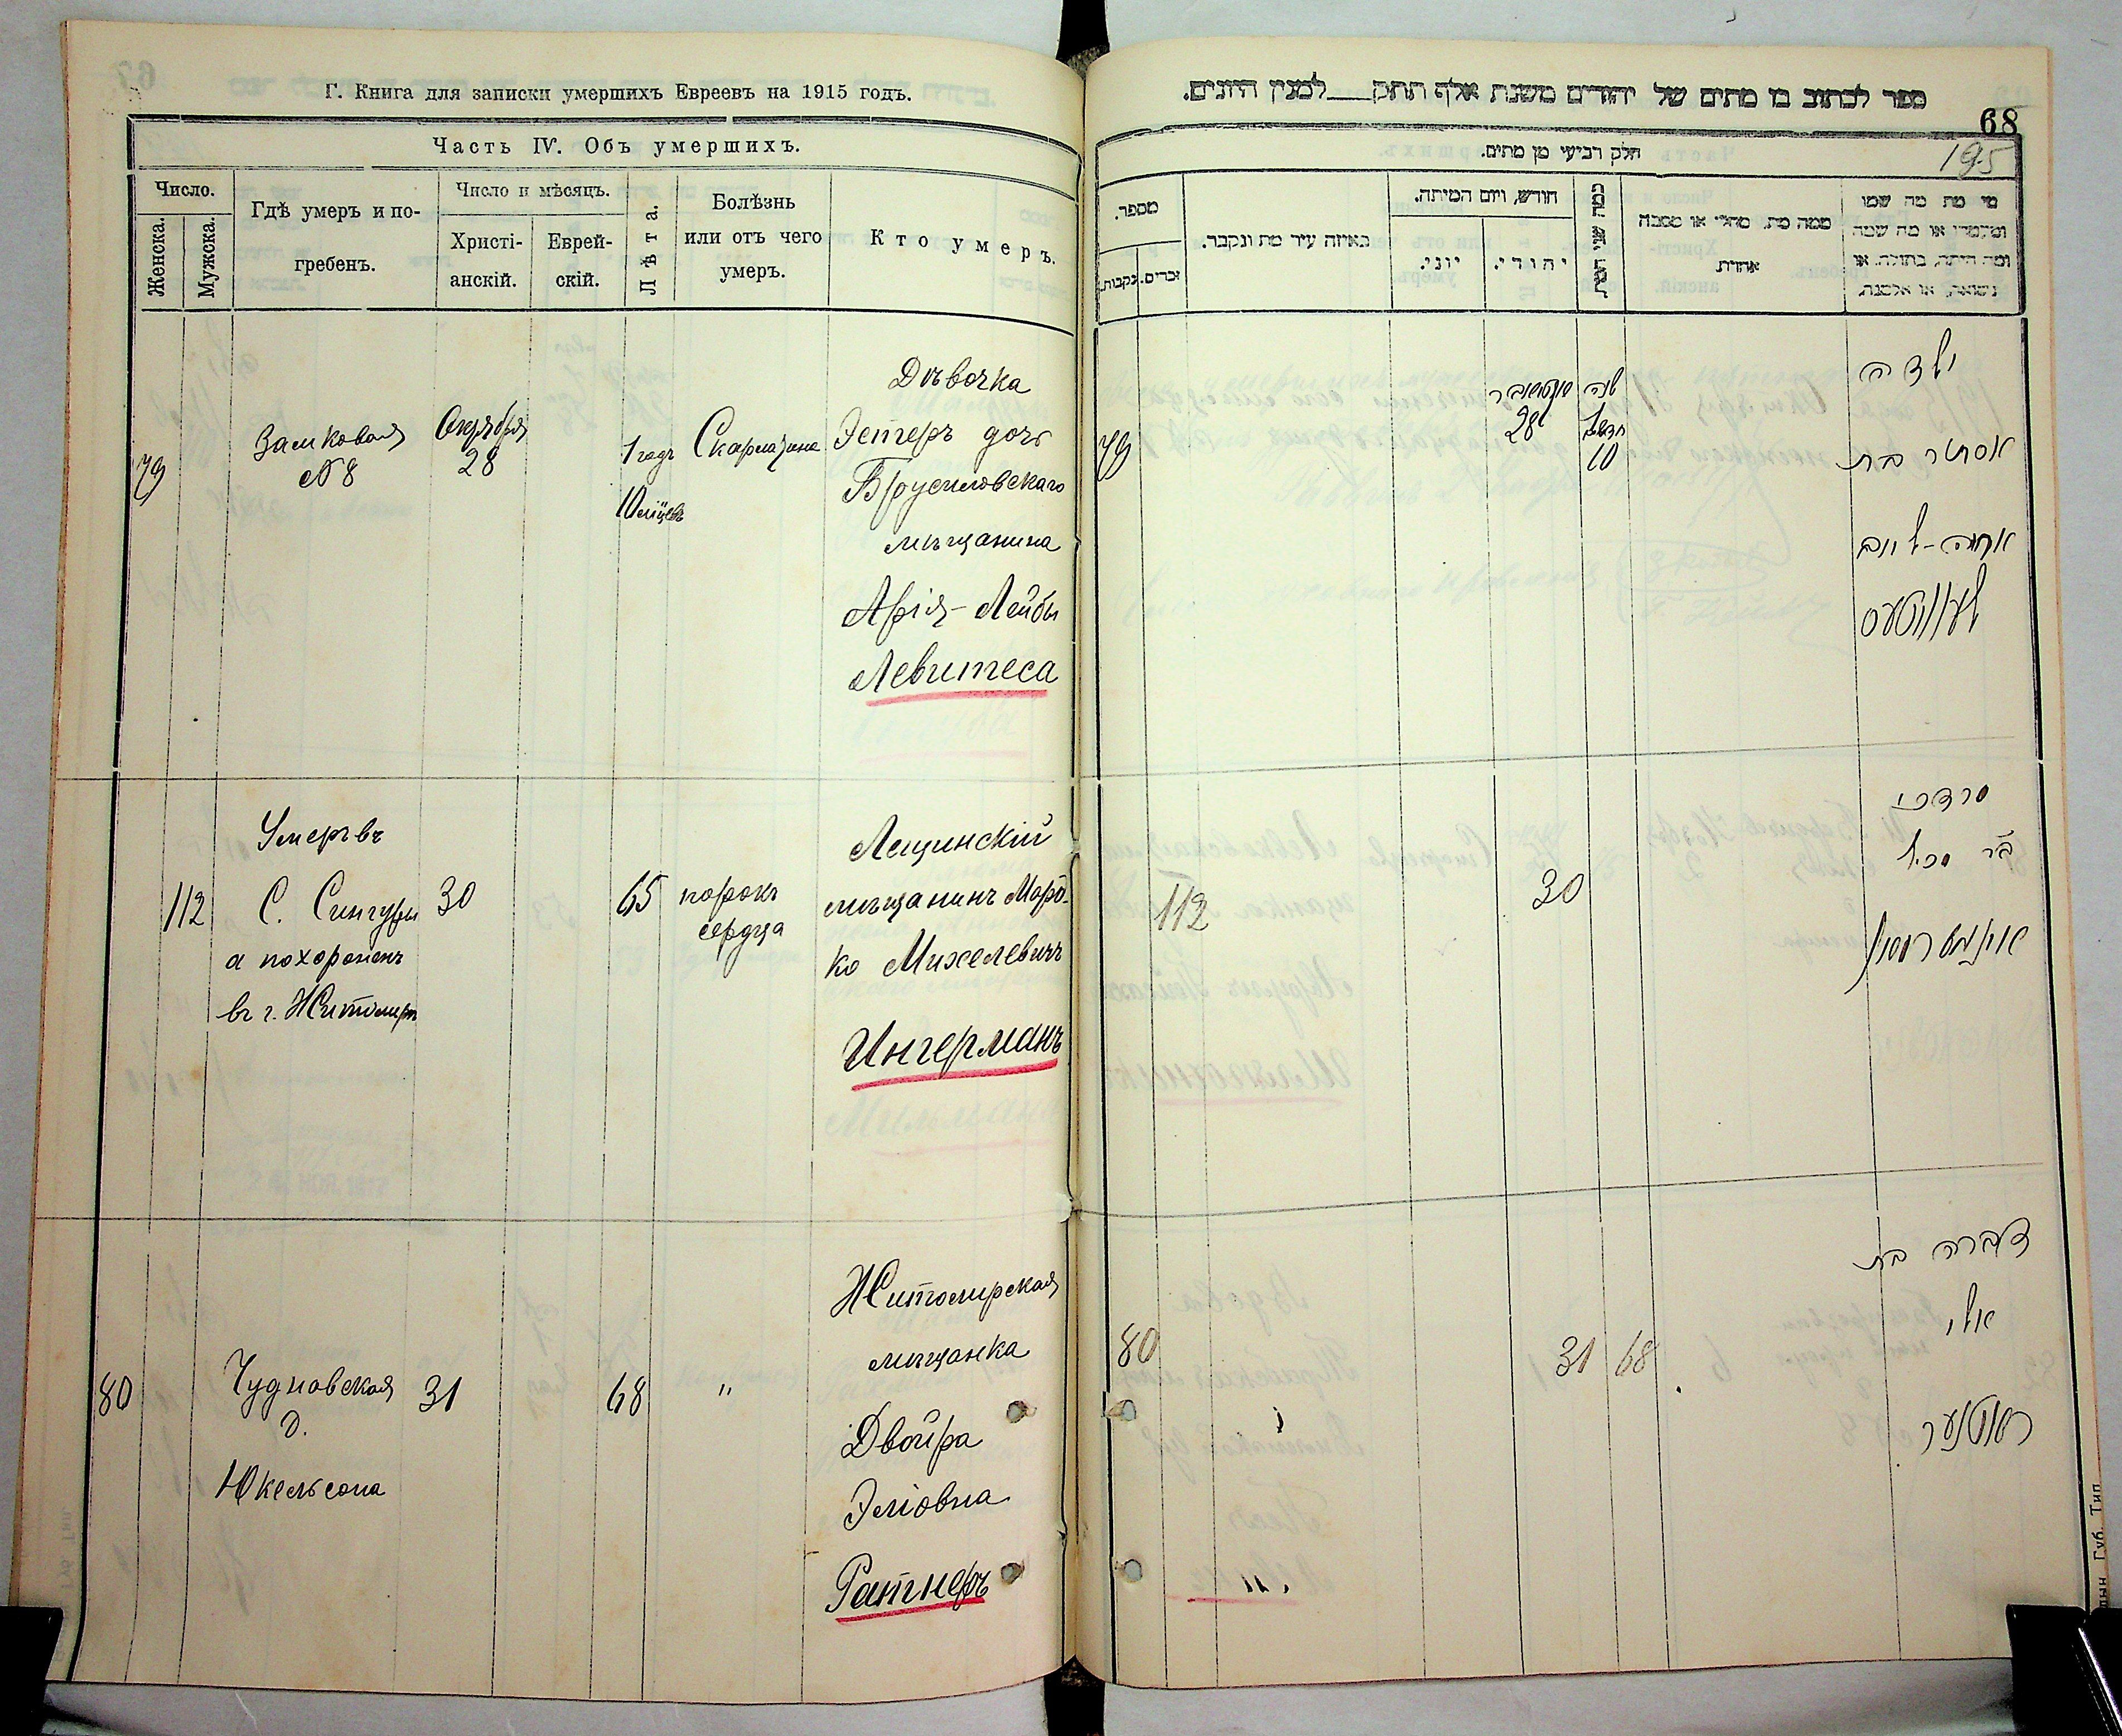 Г. Книга для записки умершихъ Евреевъ на 1915 годъ.
Часть IV. Объ умершихъ.
Число.
Женска.
Мужска.
Гдѣ умеръ и по-
гребенъ.
Число и мѣсяцъ.
Христі-
анскій.
Еврей-
скій.
Лѣта.
Болѣзнь
или отъ чего
умеръ.
Кто умеръ.
79
Замковая
№ 8
Октября
28
1 годъ
10
Скарлатина
Дѣвочка
Эстеръ дочь
Брусиловскаго
мѣщанина
Арія-Лейбы
Левитеса
112
Умеръ въ
С. Сингуры
а похороненъ
въ г. Житомирѣ
30
65
порокъ
сердца
Лещинскій
мѣщанинъ Мор-
ко Михелевичъ
Ингерманъ
80
Чудновская
д.
Юкельсона
31
68
"
Житомирская
мѣщанка
Двойра
Эліовна
Ратнеръ
ספר לכתוב בו מתים של יהודים משנת אלף תתק___למנין היונים.
68
195
חלק רביעי מן מתים.
מספר.
נקבות.
זכרים.
באיזה עיר מת ונקבר.
חודש, ויום המיתה.
יוני.
יהודי.
כמה שני המת
ממה מת. מחלי או מסבה
אחרת.
מי מת מה שמו
ומעמדו או מה שמה
ומה היתה, בתולה. או
נשואה, או אלמנה.
79
28
שנה
1
חדשים
10
ילדה
אסתר בת
ארי׳-לייב
לעוויטעס
112
30
מרדכי
ב״ר מכיל
אינגערמאן
80
31
68
דבורה בת
אלי׳
ראטנער
Губ. Тип.